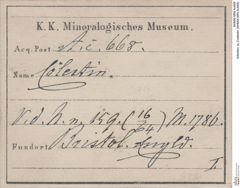 K. K. Mineralogisches Museum.
Acq. Post A. c. 668.
Nom Cölestin.
V. d. N. n. 159. (16/64) M. 1786.
Fundort Bristol. Engld.
I.